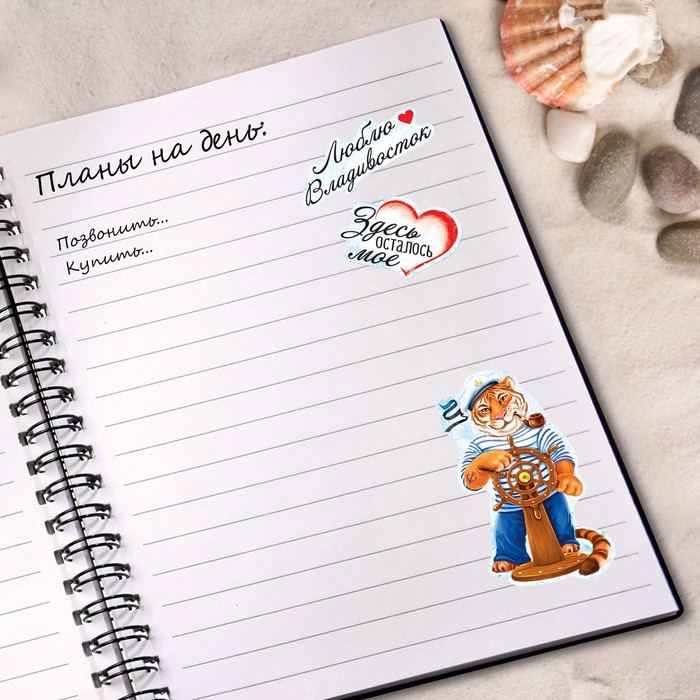 Планы на день:
Люблю
Владивосток
Позвонить...
Купить...
Здесь
осталось
мое